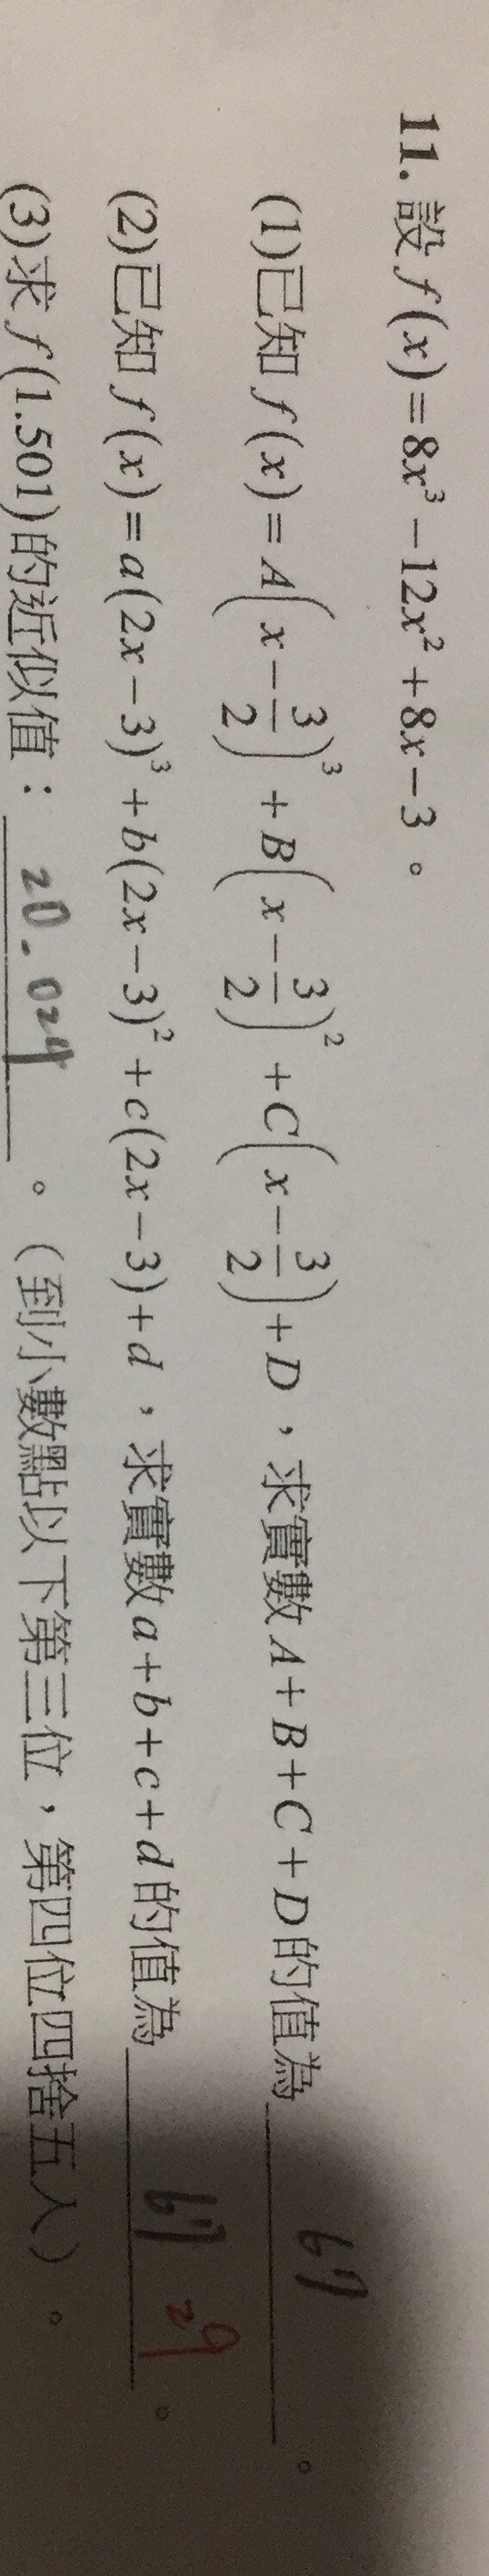 11. 設 f(x)=8x³−12x²+8x−3。
(1)已知 f(x)=A(x−3/2)³+B(x−3/2)²+C(x−3/2)+D，求實數A+B+C+D的值為 67 。
(2)已知 f(x)=a(2x−3)³+b(2x−3)²+c(2x−3)+d，求實數a+b+c+d的值為 67 29 。
(3)求 f(1.501)的近似值： 20.024 。（到小數點以下第三位，第四位四捨五入）。